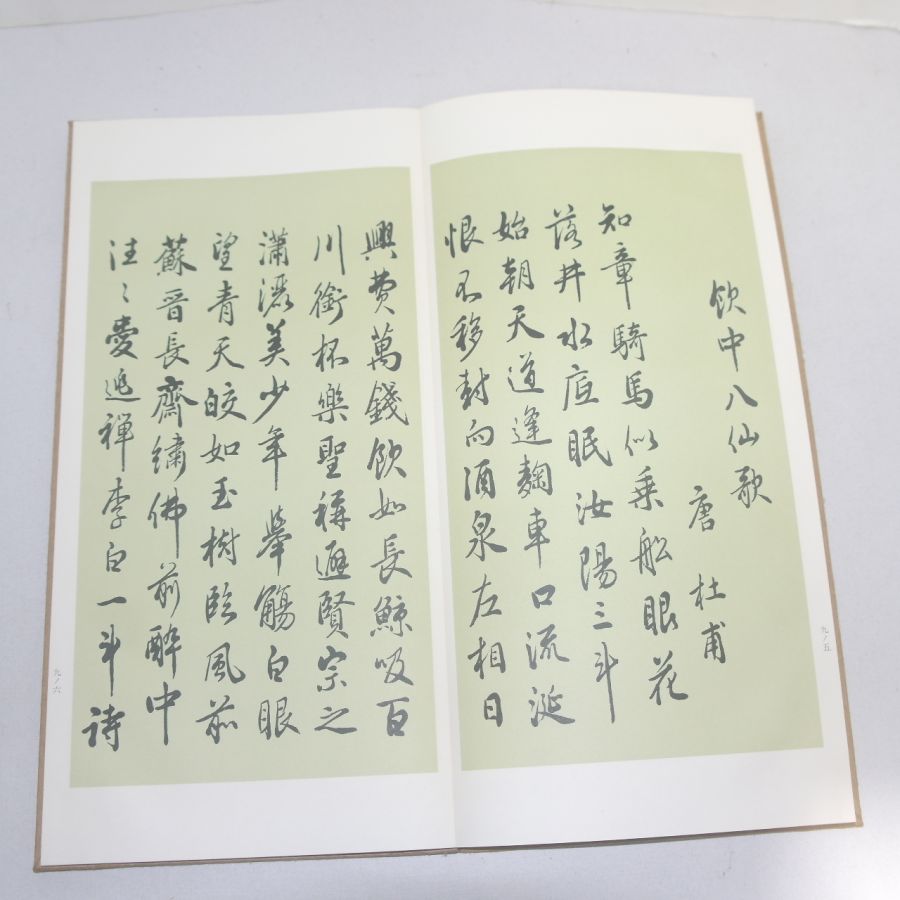 飲中八仙歌
唐 杜甫
知章騎馬似乗船眼花
落井水底眠汝陽三斗
始朝天道逢麹車口流涎
恨不移封向酒泉左相日
九ノ五
興費萬錢飲如長鯨吸百
川銜杯樂聖稱避賢宗之
瀟灑美少年舉觴白眼
望青天皎如玉樹臨風前
蘇晉長齋繍佛前醉中
往〻愛逃禪李白一斗詩
九ノ六